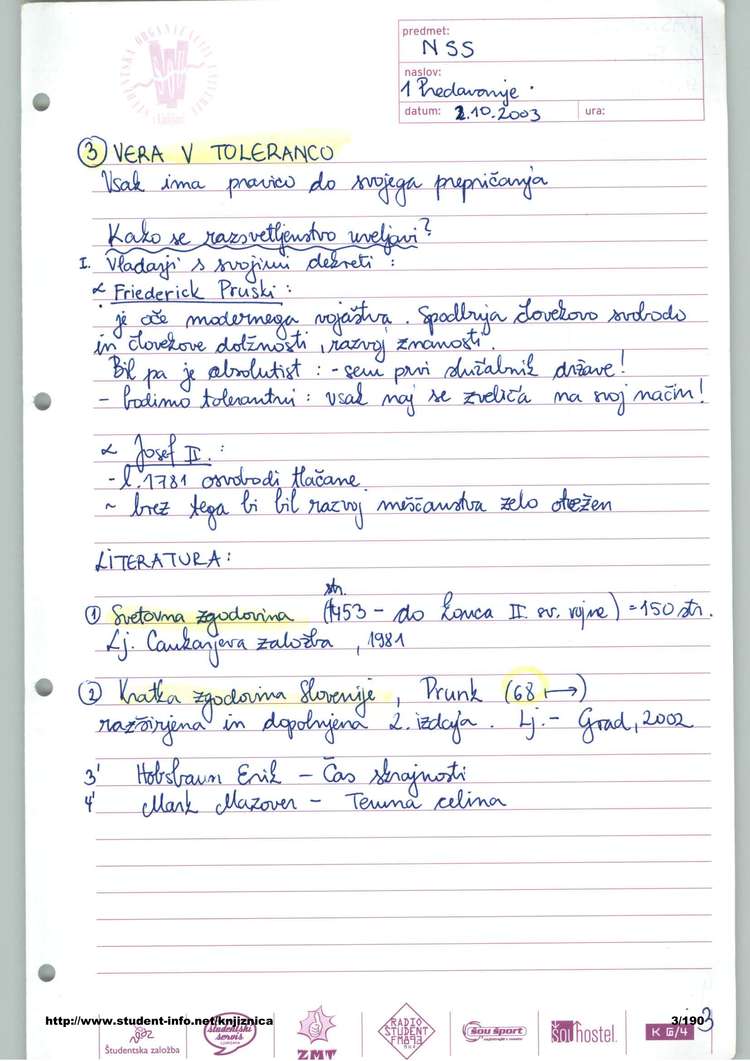 ŠTUDENTSKA ORGANIZACIJA UNIVERZE
v Ljubljani
predmet:
NSS
naslov:
1 Predavanje.
datum: 2.10.2003 ura:
③ VERA V TOLERANCO
Vsak ima pravico do svojega prepričanja
Kako se razsvetljenstvo uveljavi?
I. Vladarji s svojimi dekreti:
α Friederick Pruski:
je oče modernega vojaštva. Spodbuja človekovo svobodo
in človekove dolžnosti, razvoj znanosti.
Bil pa je absolutist: - sem prvi služabnik države!
- bodimo tolerantni: vsak naj se zveliča na svoj način!
α Josef II.:
- l. 1781 osvobodi tlačane
~ brez tega bi bil razvoj meščanstva zelo otežen
LITERATURA:
str.
① Svetovna zgodovina (1453 - do konca II. sv. vojne) = 150 str.
Lj. Cankarjeva založba, 1981
② Kratka zgodovina Slovenije, Prunk (68 ↦)
razširjena in dopolnjena 2. izdaja. Lj. - Grad, 2002
3' Hobsbawn Erik - Čas skrajnosti
4' Mark Mazover - Temna celina
http://www.student-info.net/knjiznica
3/190
3
Študentska založba
študentski servis
ZMT
RADIO ŠTUDENT
šou šport
šouhostel.
K G/4